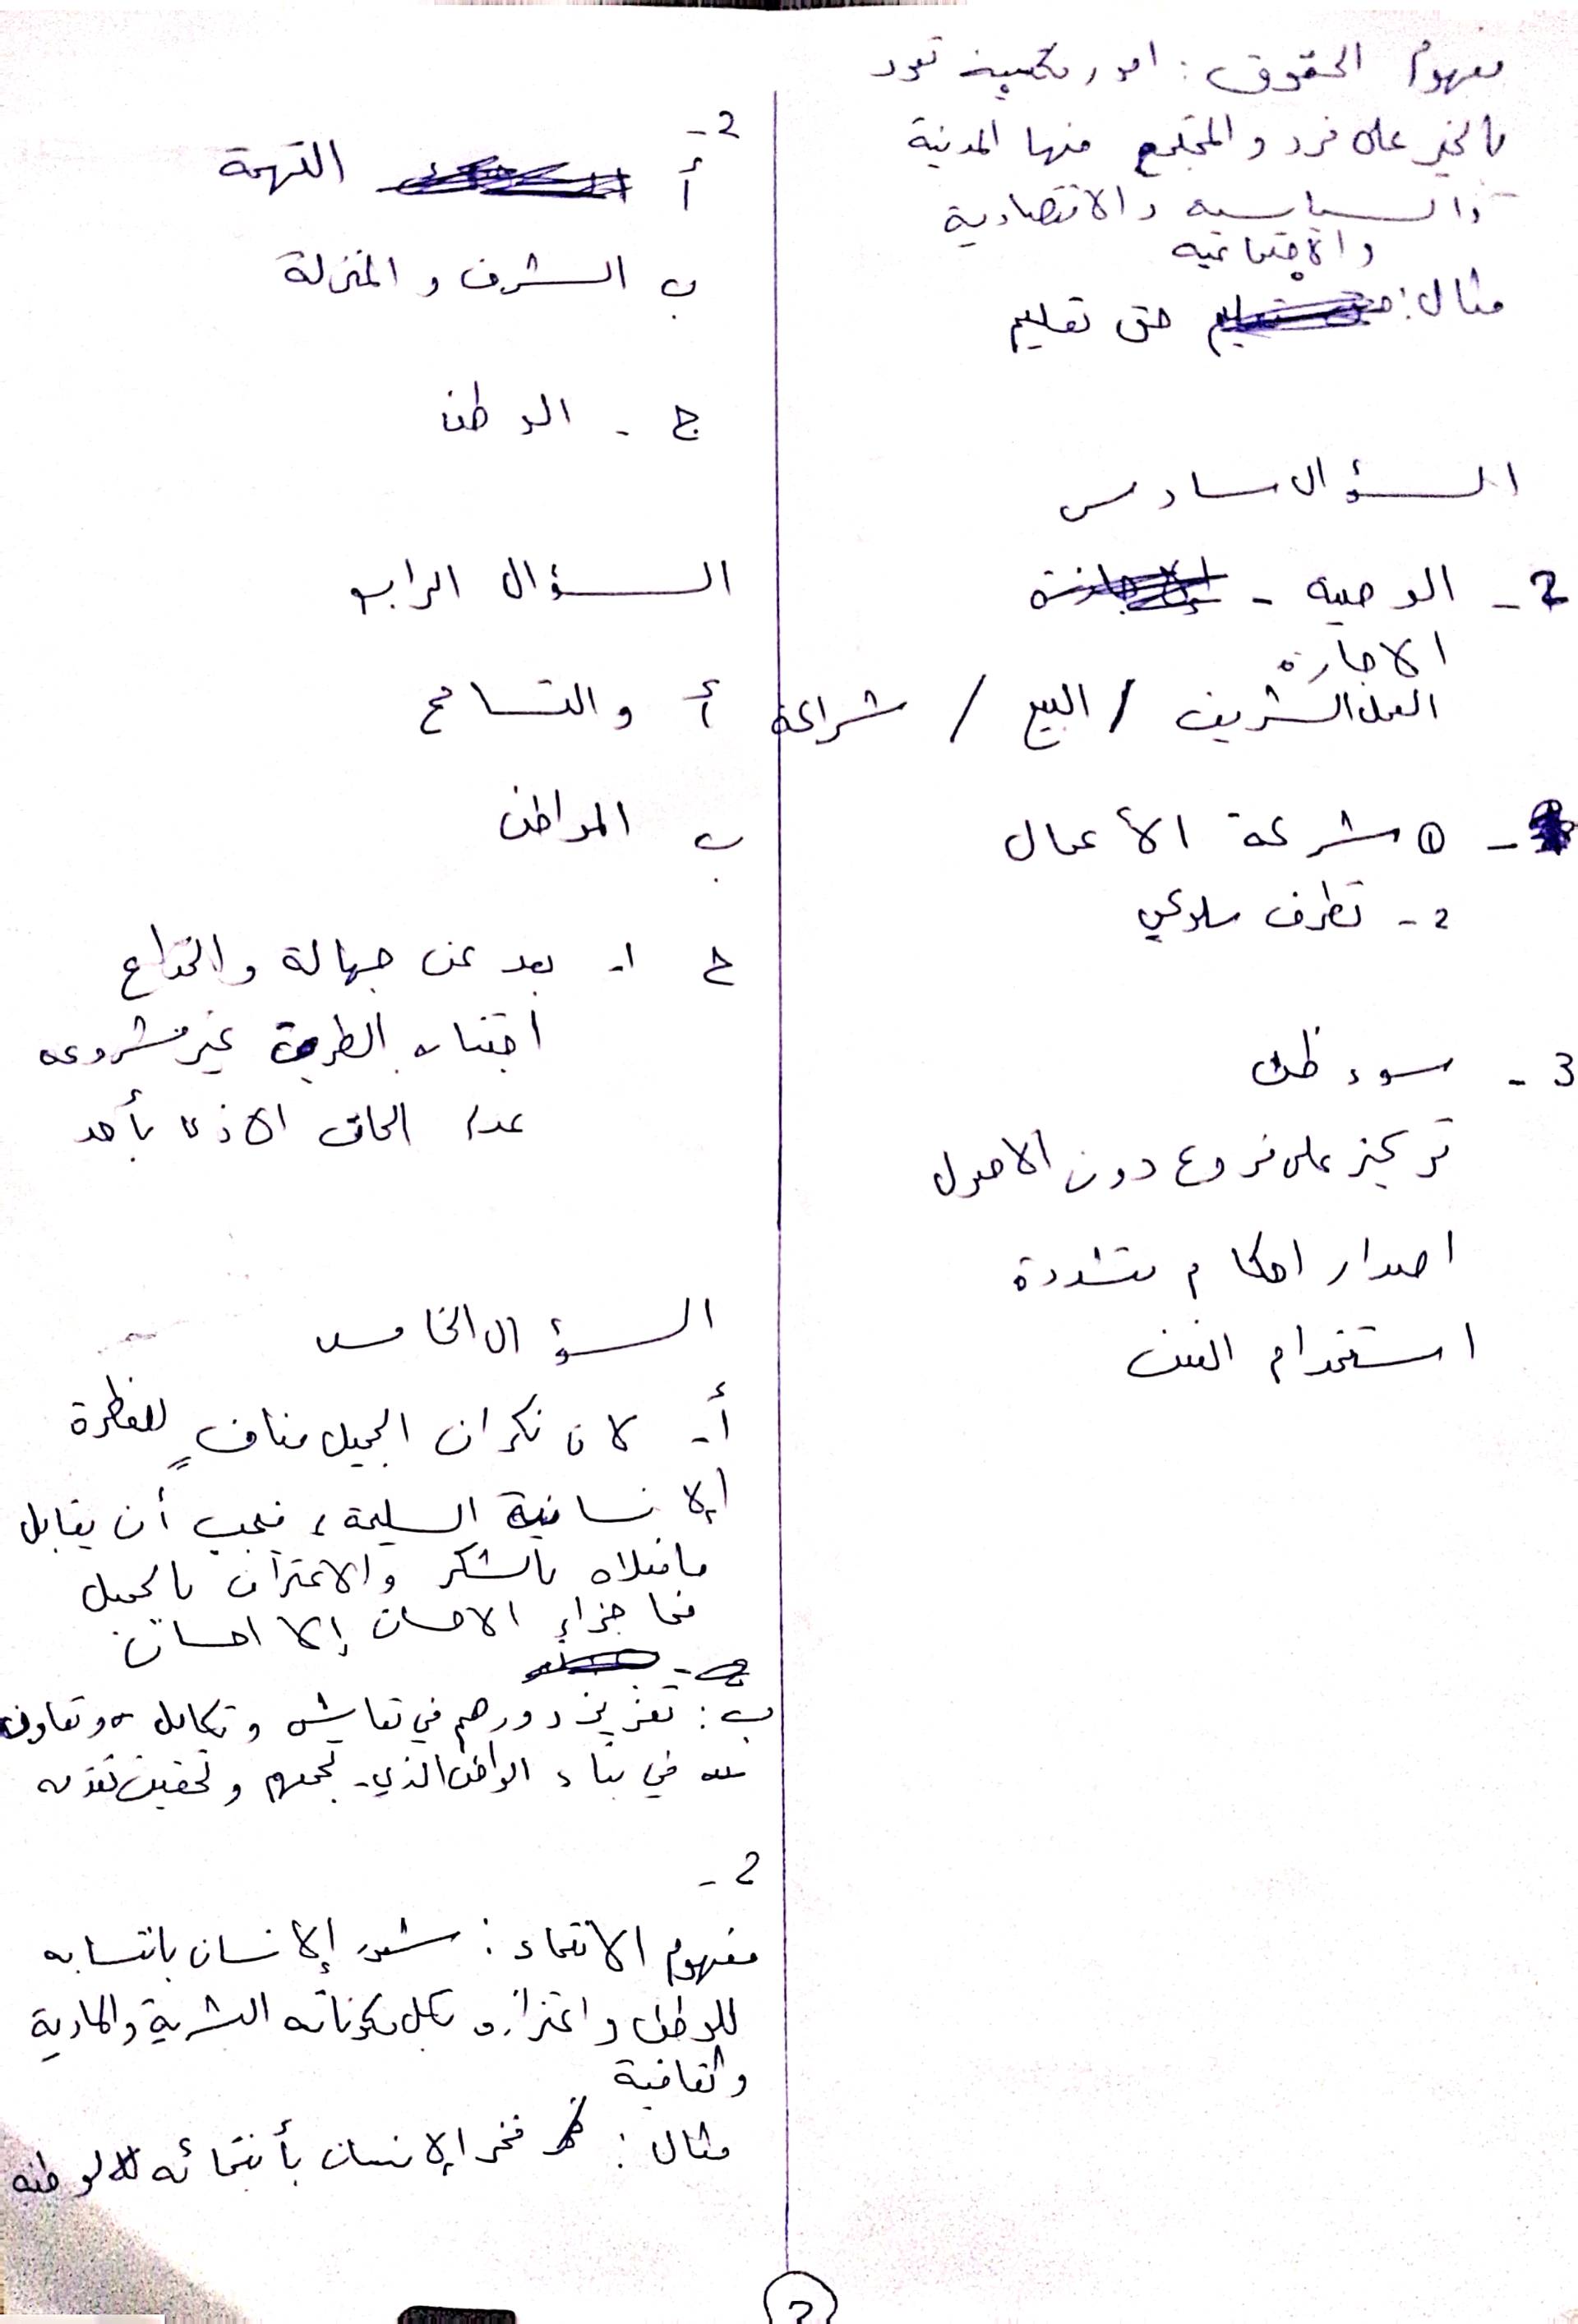 مفهوم الحقوق : امور مكتسبة تعود
بالخير على فرد و المجتمع منها المدنية
والسياسيه والاقتصادية
والاجتماعيه
مثال : حق تعليم
السؤال سادس
2 - الوصيه -
الاجارة
العمل الشريف / البيع / شراكة
- ① شركة الأعمال
2 - تطرف سلوكي
3 - سوء ظن
تركيز على فروع دون الاصول
اصدار احكام متشددة
استخدام العنف
2 -
أ التهمة
ب الشرف و المنزلة
ج - الوطن
السؤال الرابع
أ والتسامح
ب المواطن
ج 1- بعد عن جهالة والخداع
اجتناب الطرق غير مشروعه
عدم الحاق الاذى بأحد
السؤال الخامس
أ- لان نكران الجميل منافٍ للفطرة
الإنسانية السليمة ، فيجب أن يقابل
بالشكر والاعتراف بالجميل
فما جزاء الاحسان إلا احسان
ب : تعزيز دورهم في تعايش و تكامل و تعاون
في بناء الوطن الذي يجمعهم و تحقيق تقدمه
2 -
مفهوم الانتماء : شعور الإنسان بانتسابه
للوطن و اعتزازه بكل مكوناته البشرية والمادية
وثقافية
مثال : فخر الإنسان بأنتمائه لوطنه
2